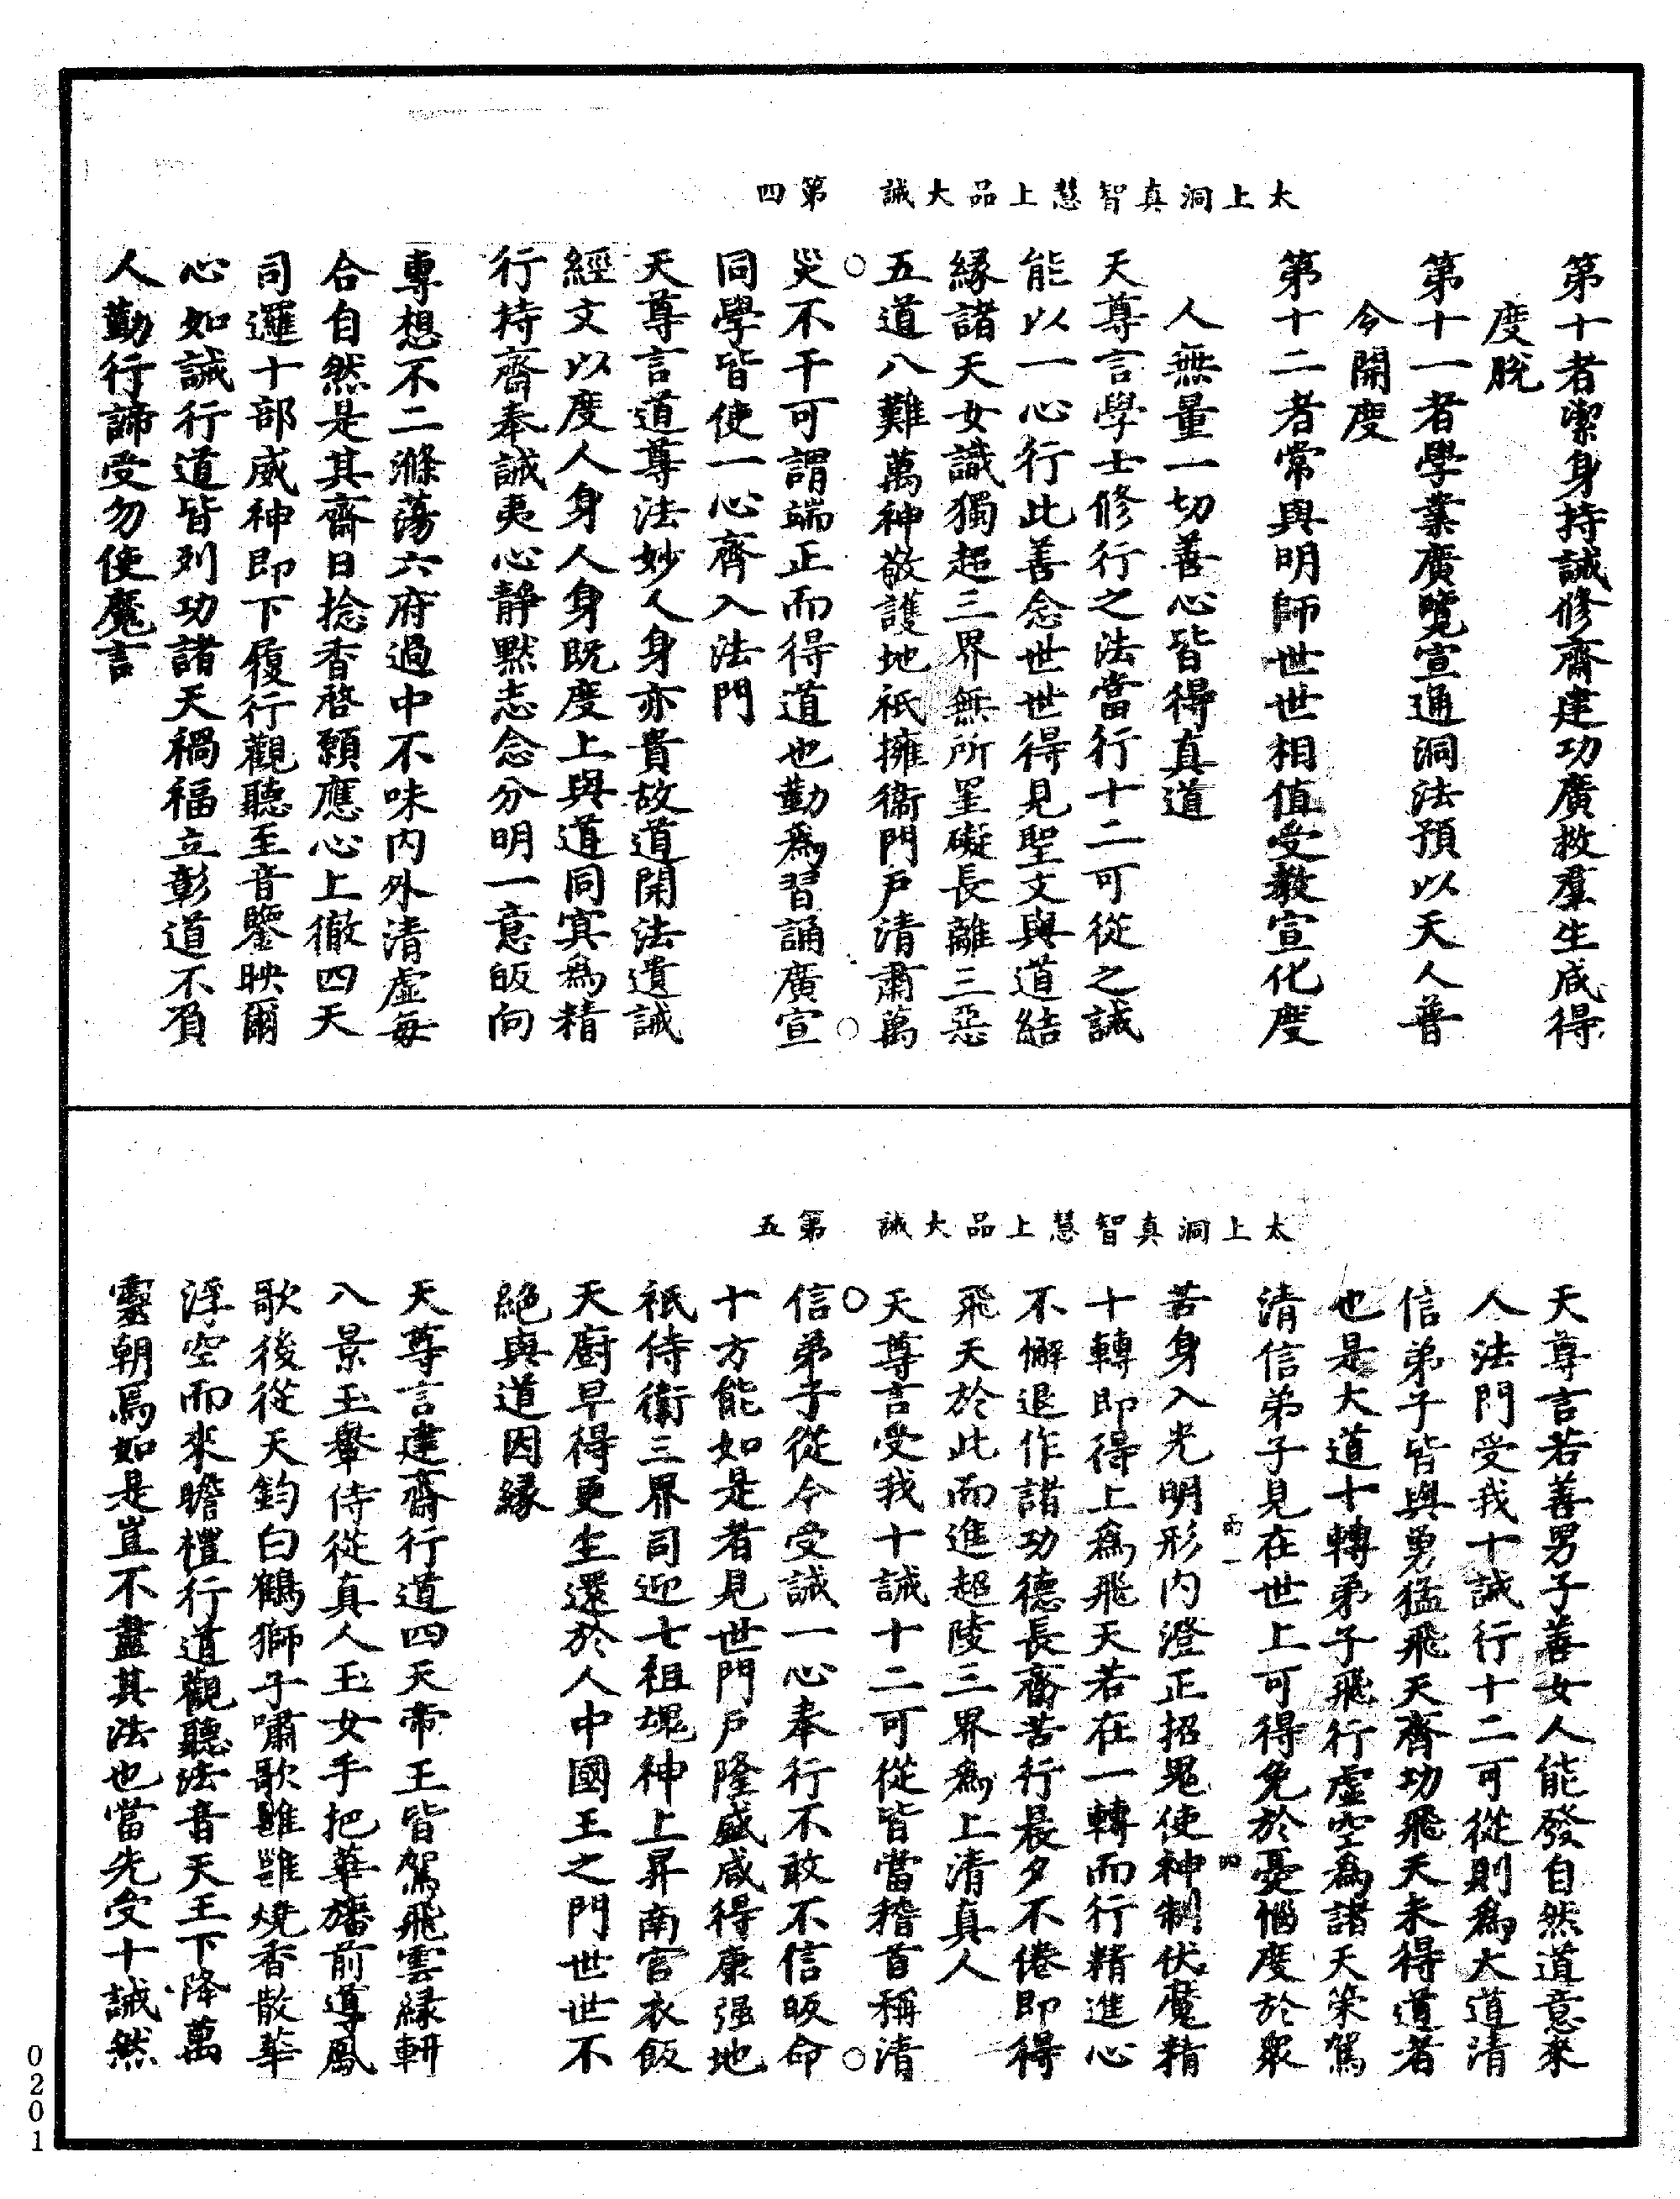 太上洞真智慧上品大誡 第四
第十者潔身持誡修齋建功廣救羣生咸得
度脫
第十一者學業廣覽宣通洞法預以天人普
令開度
第十二者常與明師世世相值受教宣化度
人無量一切善心皆得真道
天尊言學士修行之法當行十二可從之誡
能以一心行此善念世世得見聖文與道結
緣諸天女識獨超三界無所罣礙長離三惡
五道八難萬神敬護地祇擁衛門戶清肅萬
災不干可謂端正而得道也勤爲習誦廣宣
同學皆使一心齊入法門
天尊言道尊法妙人身亦貴故道開法遺誡
經文以度人身人身既度上與道同寞爲精
行持齋奉誡夷心靜默志念分明一意皈向
專想不二滌蕩六府過中不味內外清虛每
合自然是其齋日捻香啓願應心上徹四天
司邏十部威神即下履行觀聽至音鑒映爾
心如誡行道皆列功諸天禍福立彰道不負
人勤行諦受勿使魔言
太上洞真智慧上品大誡 第五
天尊言若善男子善女人能發自然道意來
人法門受我十誡行十二可從則爲大道清
信弟子皆與勇猛飛天齊功飛天未得道者
也是大道十轉弟子飛行虛空爲諸天策駕
清信弟子見在世上可得免於憂惱度於衆
雨一 四
苦身入光明形內澄正招鬼使神制伏魔精
十轉即得上爲飛天若在一轉而行精進心
不懈退作諸功德長齋苦行晨夕不倦即得
飛天於此而進超陵三界爲上清真人
天尊言受我十誡十二可從皆當稽首稱清
信弟子從今受誡一心奉行不敢不信皈命
十方能如是者見世門戶隆盛咸得康强地
祇侍衛三界司迎七祖魂神上昇南宮衣飯
天廚早得更生還於人中國王之門世世不
絕與道因緣
天尊言建齋行道四天帝王皆駕飛雲緑軿
八景玉轝侍從真人玉女手把華旛前導鳳
歌後從天鈞白鶴獅子嘯歌雝雝燒香散華
浮空而來瞻禮行道觀聽法音天王下降萬
靈朝焉如是豈不盡其法也當先受十誡然
0201